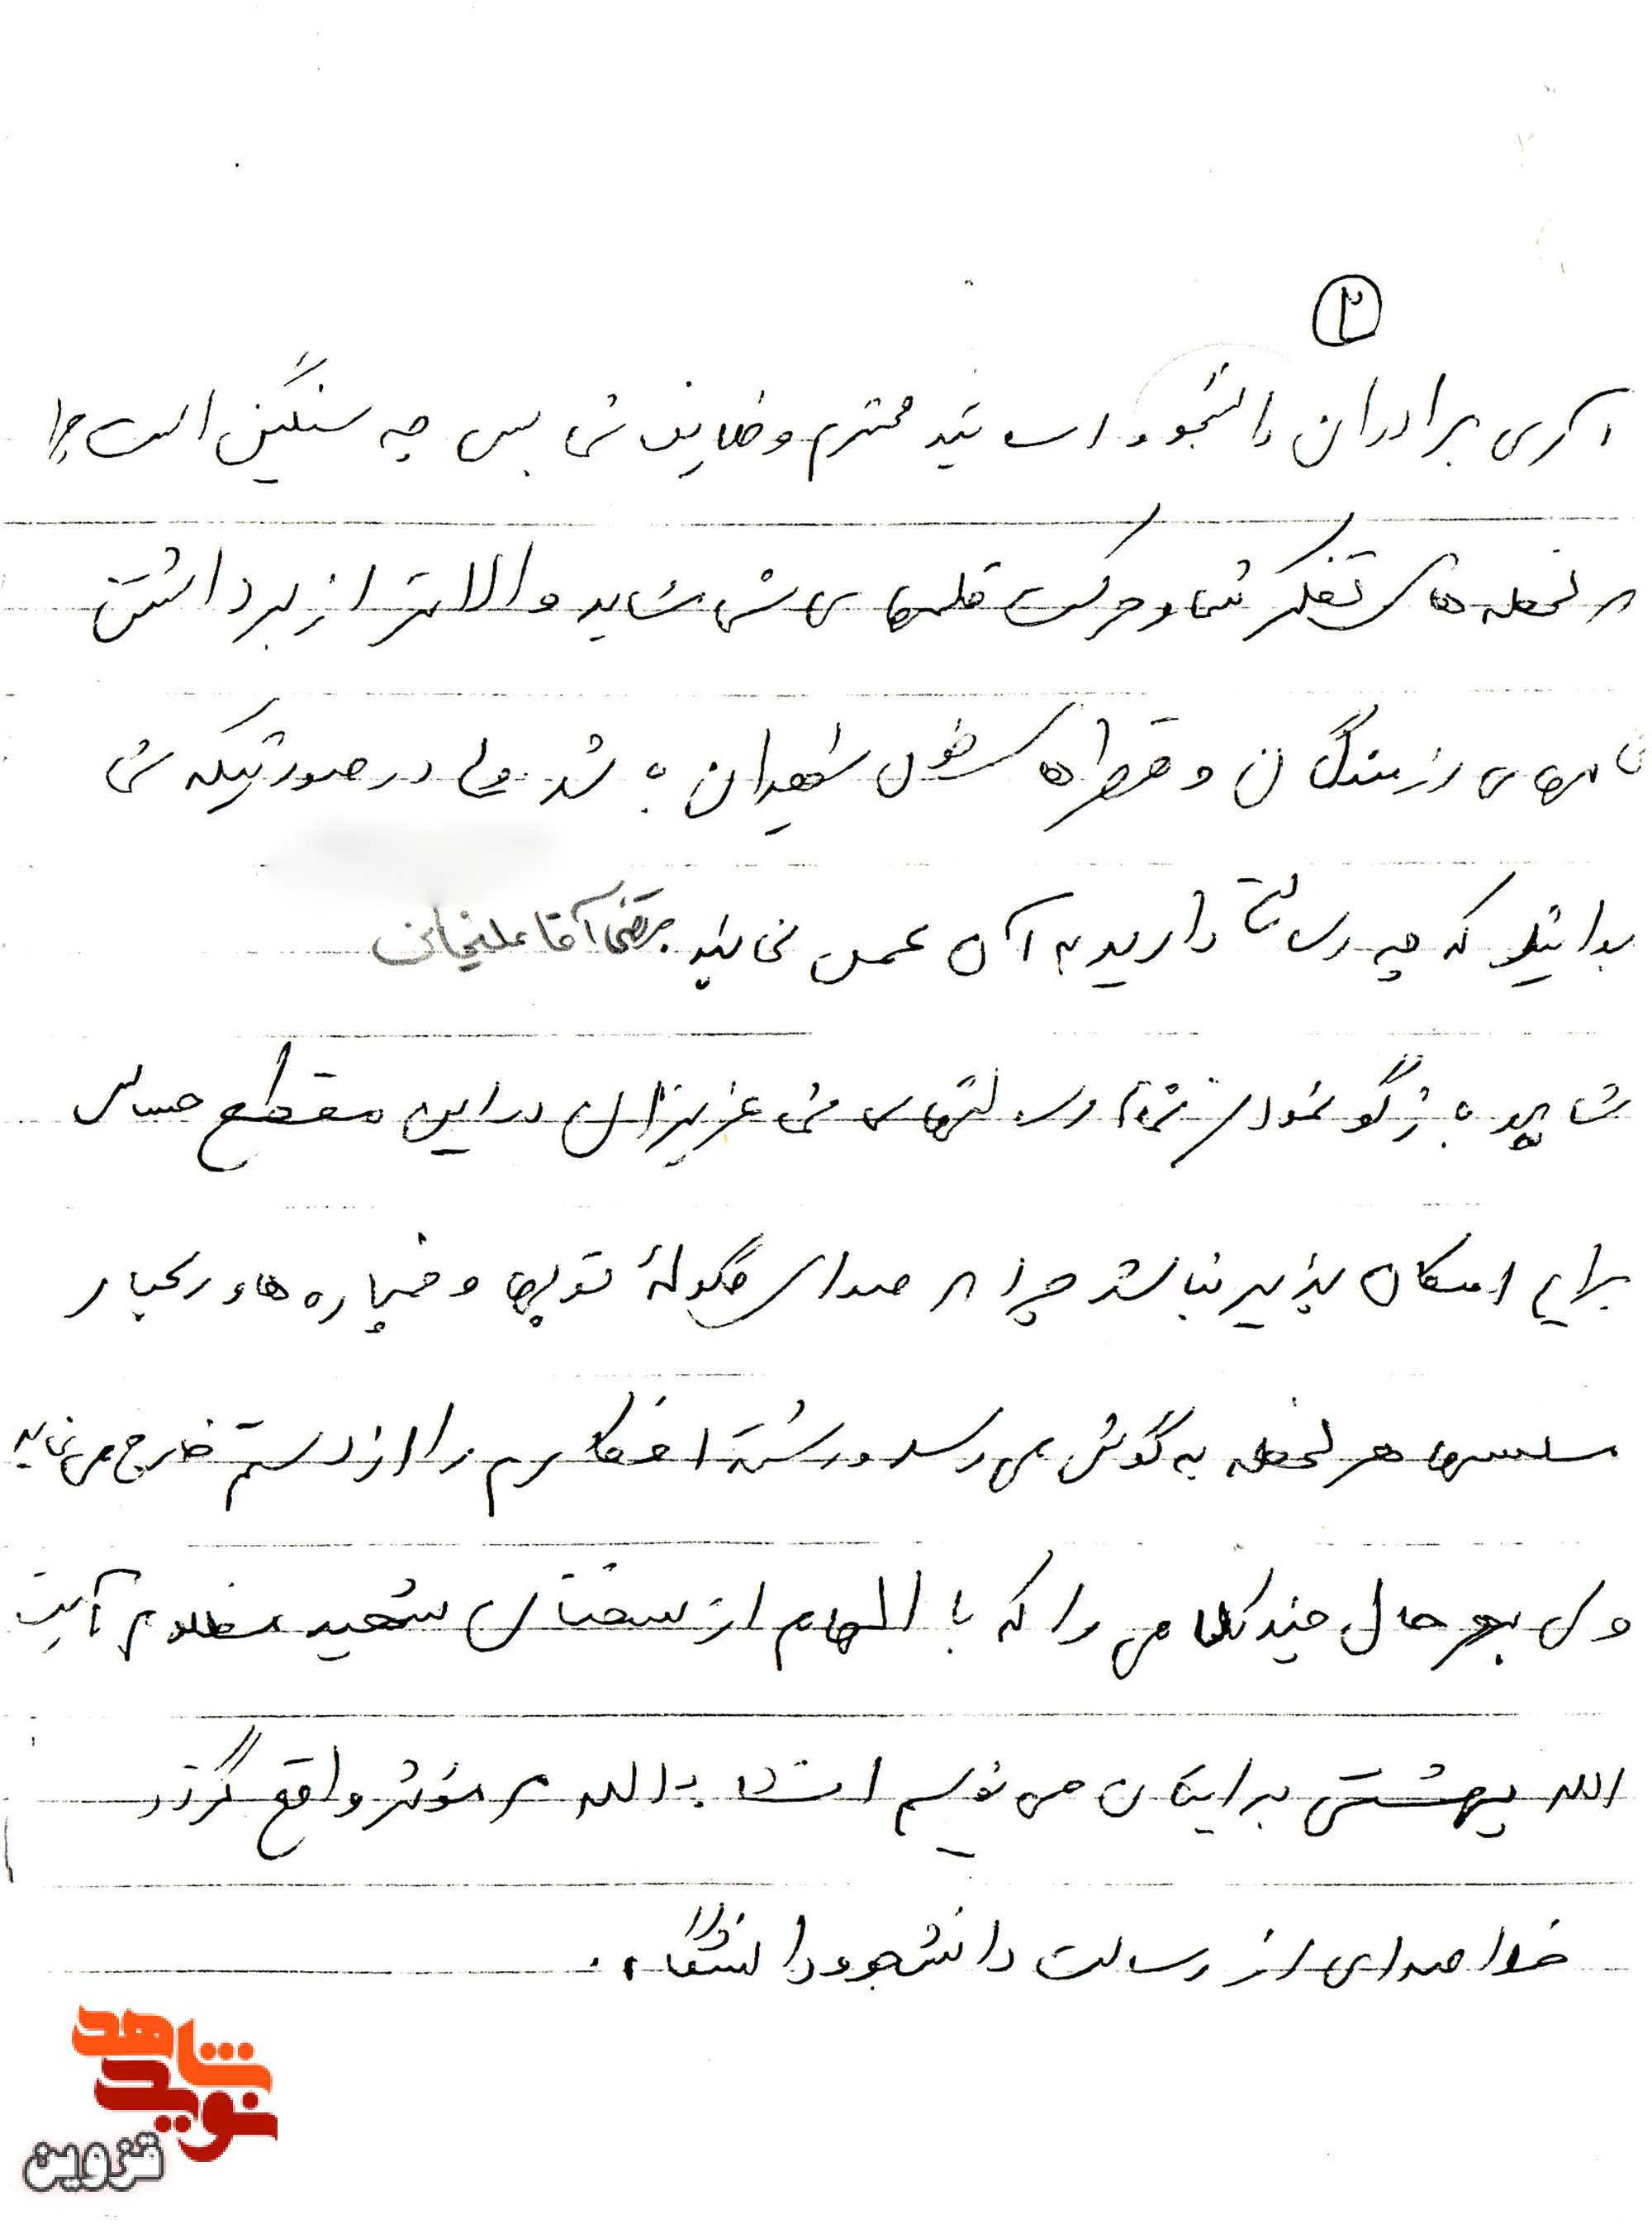 ۲
آری برادران دانشجو و اساتید محترم وظایف شما بس چه سنگین است چرا
که لحظه های تفکر شما و حرکت قلمهای شما شاید والاتر از برداشتن
گامهای رزمندگان و قطرهای خون شهیدان باشد ولی در صورتیکه شما
بدانید که چه رسالتی دارید به آن عمل نمائید مرتضی آقاعلیخانی
شاید بازگو نمودن رسالتهای شما عزیزان در این مقطع حساس
برایم امکان پذیر نباشد چرا که صدای گلولهٔ توپها و خمپاره ها و رگبار
مسلسلها هر لحظه به گوش می رسد و رشته افکارم را از دستم خارج می نماید
ولی بهر حال چند کلامی را که با الهام از سخنان شهید مظلوم آیت
الله بهشتی برایتان می نویسم انشاءالله که مؤثر واقع گردد
صدای از رسالت دانشجو و دانشگاه.
شاهد
نوید
قزوین